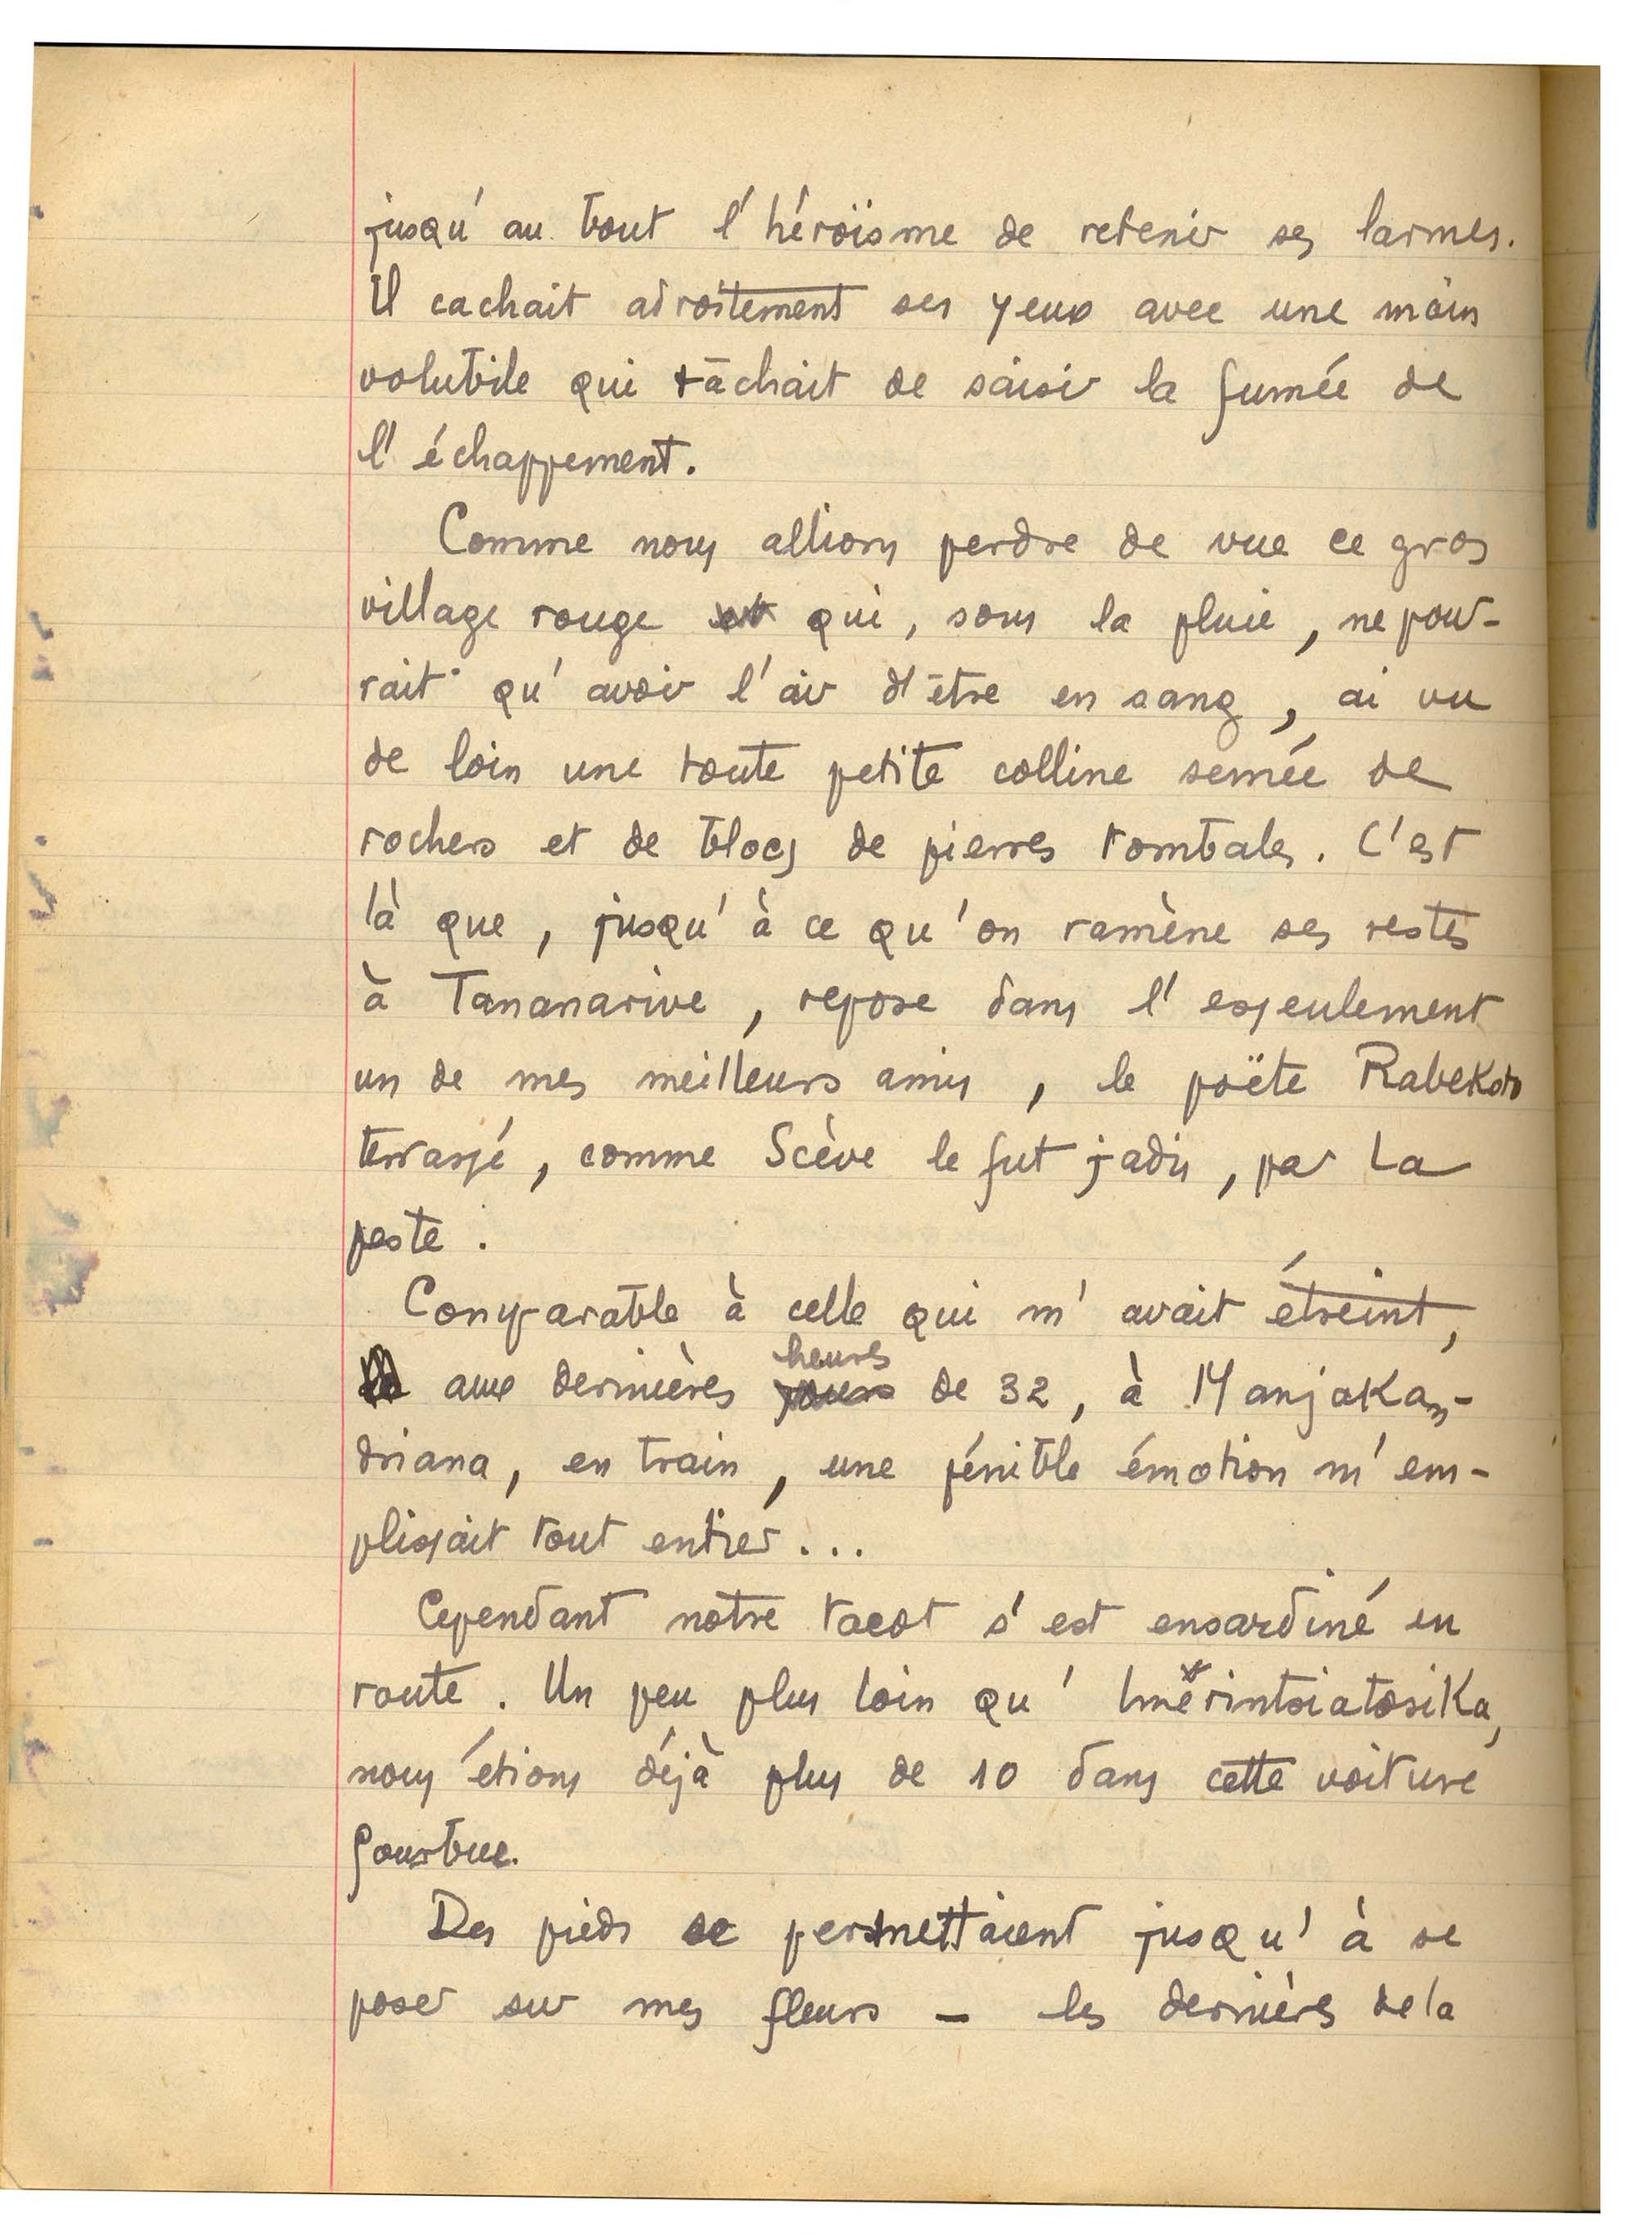 jusqu'au bout l'héroïsme de retenir ses larmes.
Il cachait adroitement ses yeux avec une main
volubile qui tâchait de saisir la fumée de
l'échappement.
Comme nous allions perdre de vue ce gros
village rouge qui, sous la pluie, ne pour-
rait qu'avoir l'air d'être en sang, ai vu
de loin une toute petite colline semée de
rochers et de blocs de pierres tombales. C'est
là que, jusqu'à ce qu'on ramène ses restes
à Tananarive, repose dans l'esseulement
un de mes meilleurs amis, le poëte Rabekoto
terrassé, comme Scève le fut jadis, par la
peste.
Comparable à celle qui m'avait étreint,
aux dernières heures de 32, à Manjakan-
driana, en train, une pénible émotion m'em-
plissait tout entier...
Cependant notre tacot s'est ensardiné en
route. Un peu plus loin qu'Imerintsiatosika,
nous étions déjà plus de 10 dans cette voiture
fourbue.
Des pieds se permettaient jusqu'à se
poser sur mes fleurs – les dernières de la